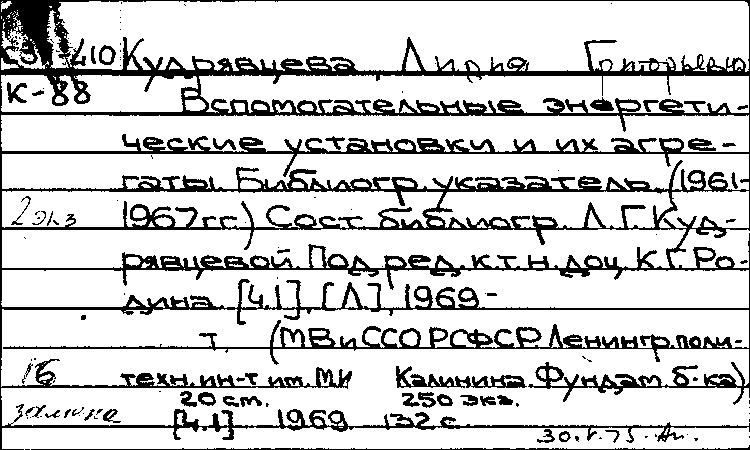 Кудрявцева, Лирия Григорьевна
К-88
Вспомогательные энергети-
ческие установки и их агре-
гаты. Библиогр. указатель. (1961-
2 экз 1967 гг.) Сост. библиогр. Л. Г. Куд-
рявцевой. Под ред. к.т.н. доц. К. Г. Ро-
дина. [Ч.1]. [Л], 1969-
т. (МВиССО РСФСР. Ленингр. поли-
1б техн. ин-т им. М.И Калинина. Фундам. б-ка)
20 ст. 250 экз.
[Ч.1] 1969. 132 с.
30.V.75.